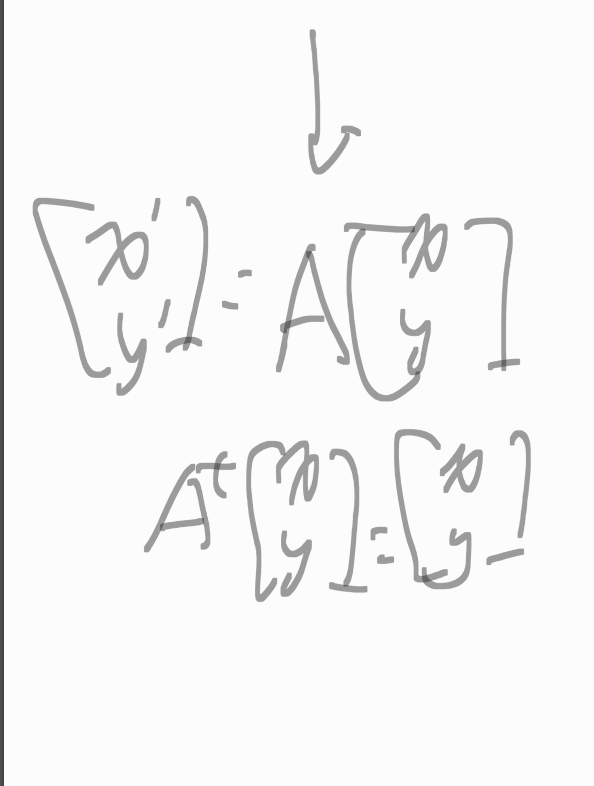 [x' y'] = A [x y]
A⁻ᶜ [x y] = [x y]